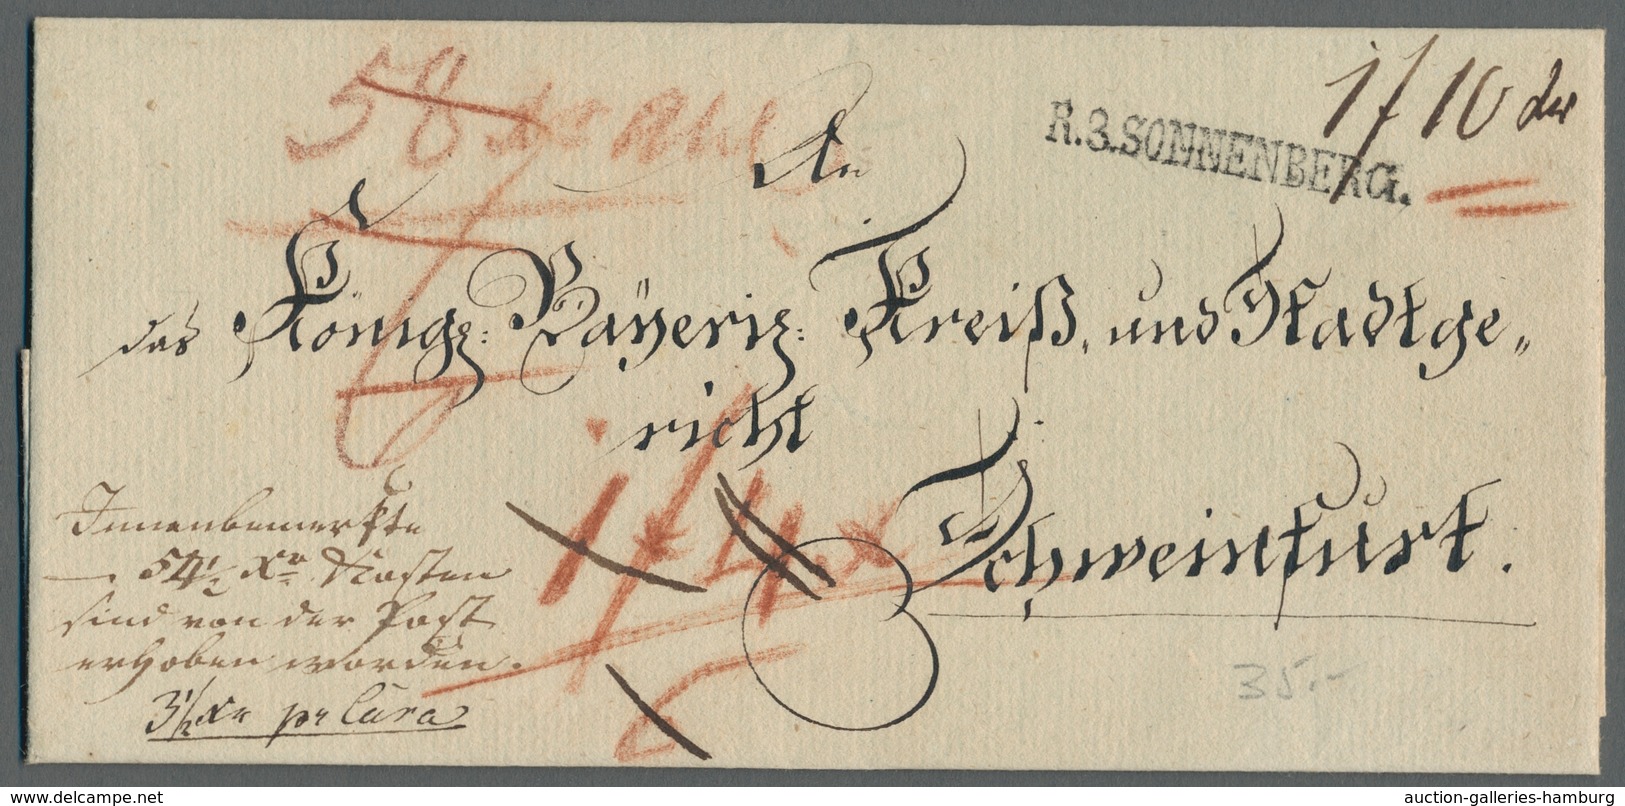 58
An
R.3.SONNENBERG.
1f 10
das Königl: Bayeril: Kreiß, und Stadtge„
richt
Schweinfurt.
Innenbemerkte
— 54½ Xr Kosten
sind von der Post
erhoben worden.
3½ Xr pr Cura
1f 4 x
6
35.-
www.delcampe.net
auction-galleries-hamburg